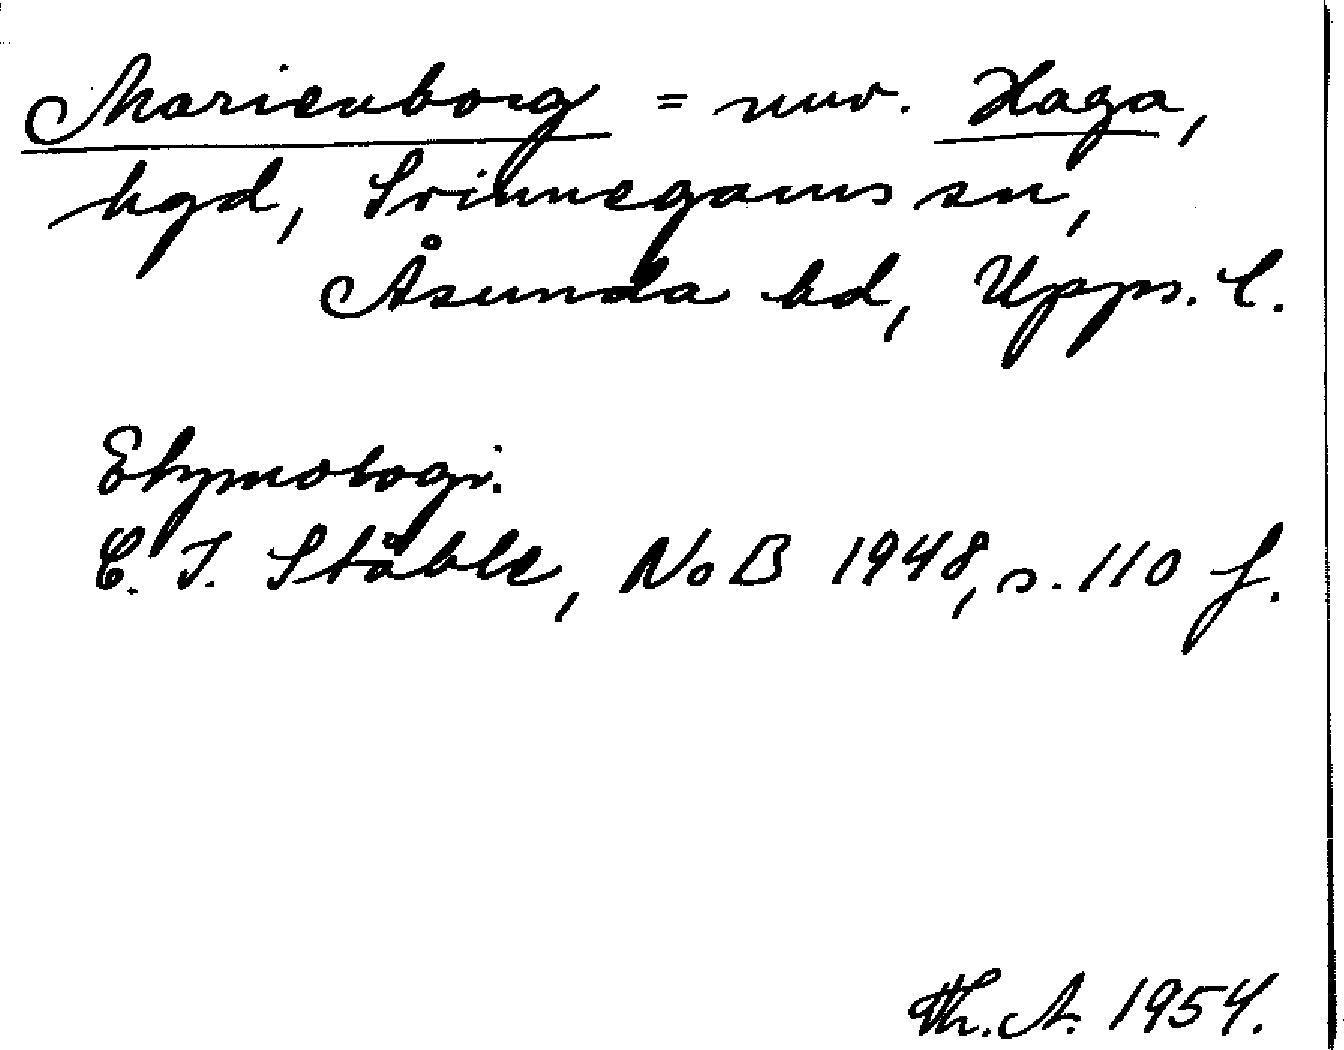 Marienborg = nuv. Haga,
hgd, Svinnegarns sn,
Åsunda hd, Upps. l.
Etymologi.
C. I. Ståhle, NoB 1948, s. 110 f.
Th. A. 1954.